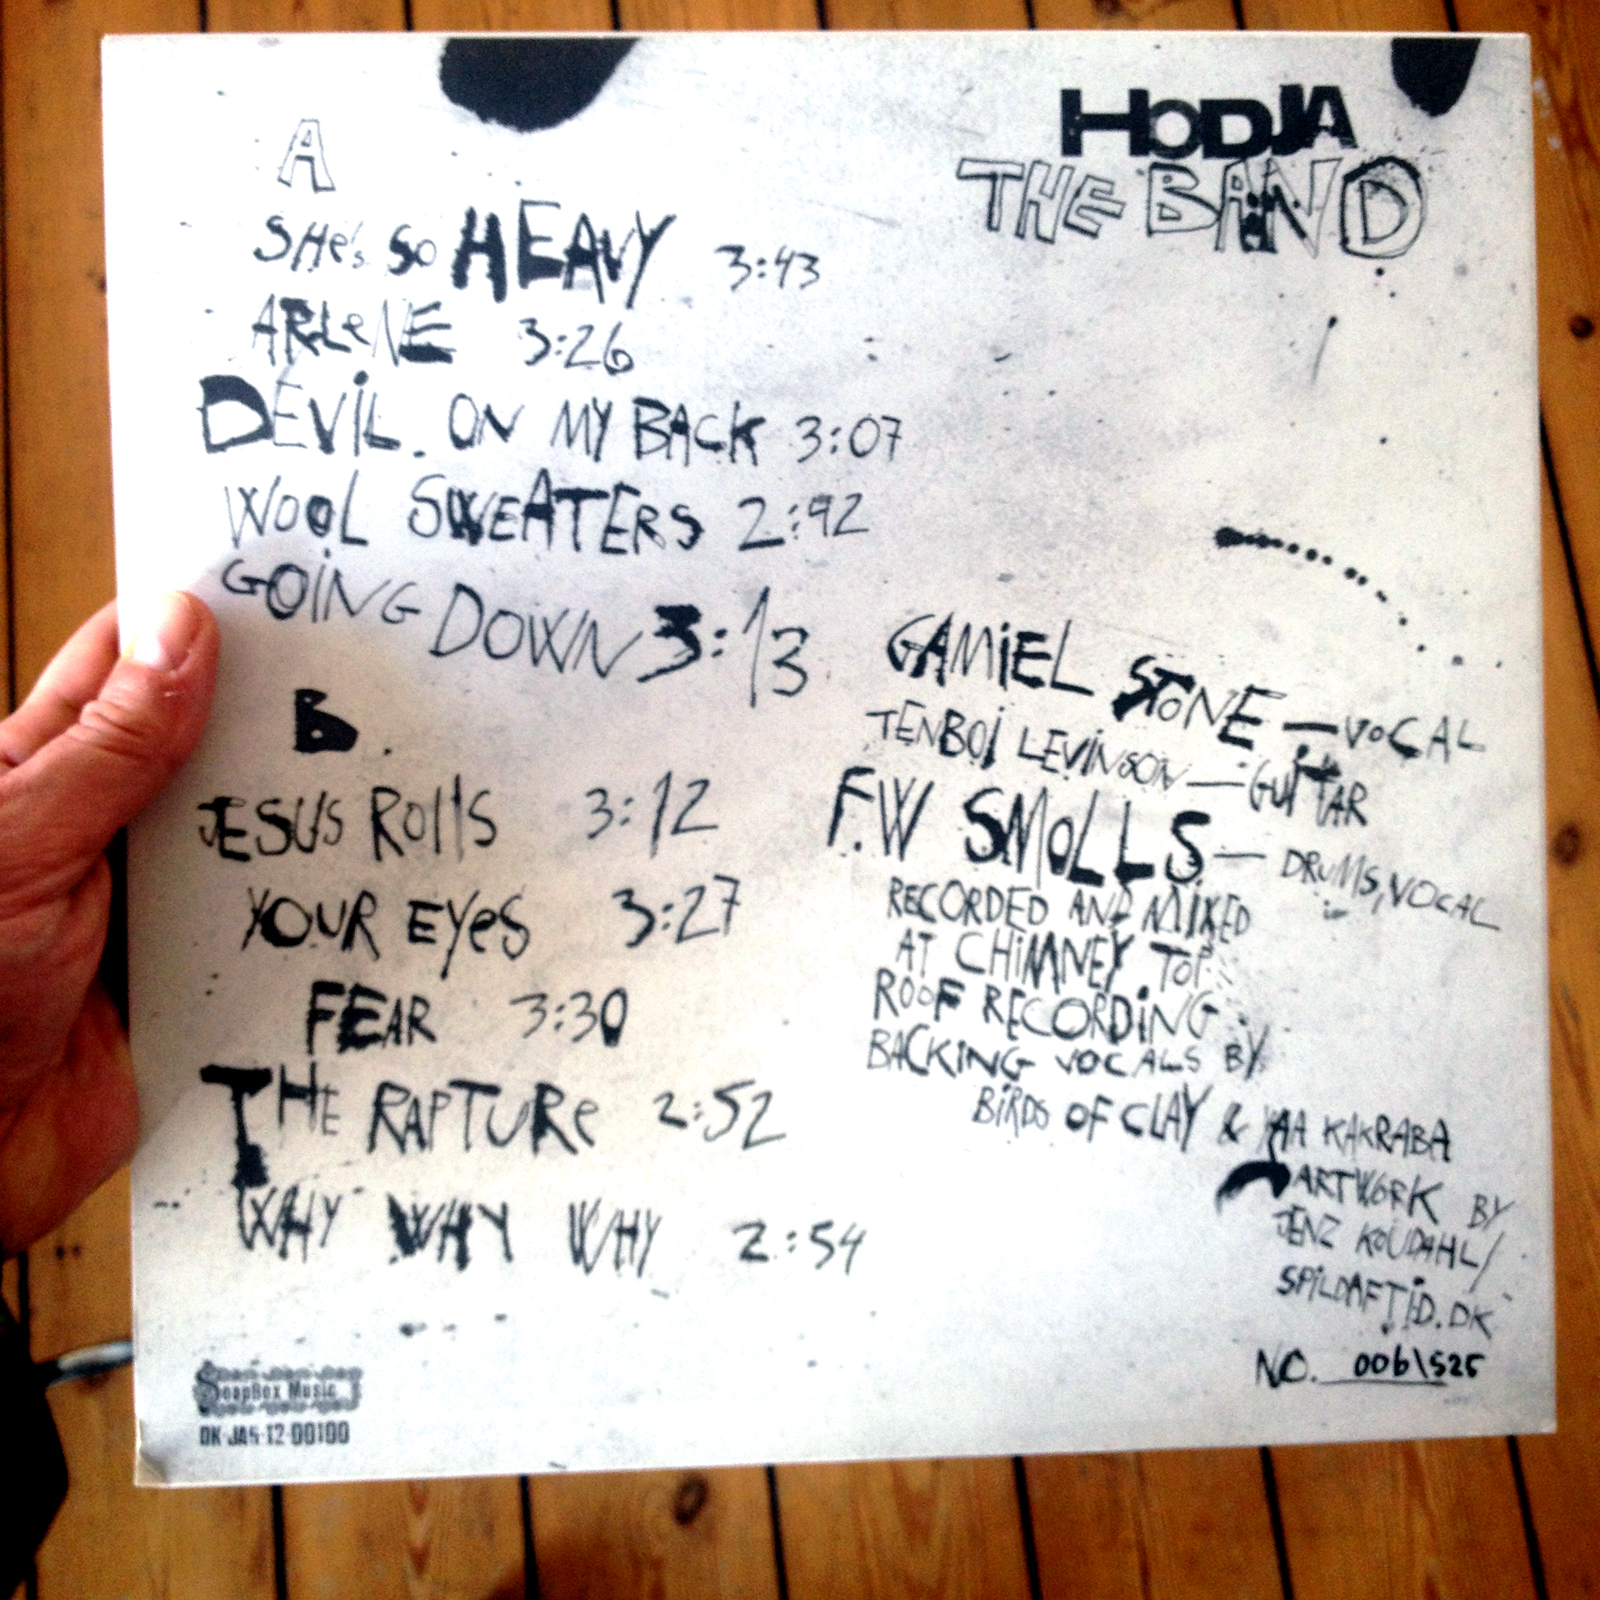 HODJA
THE BAND
A
SHe's SO HEAVY 3:43
ARLeNE 3:26
DEViL. ON MY BACK 3:07
WOOL SWEATERS 2:42
GOiNG DOWN 3:13
B.
JESUS ROllS 3:12
YOUR EYeS 3:27
FEAR 3:30
THE RAPTURe 2:52
WHY WHY WHY 2:54
GAMiEL STONE — VOCAL
TENBOi LEViNSON — GUiTAR
F.W SMOLLS — DRUMS, VOCAL
RECORDED AND MIXED
AT CHiMNEY TOP
ROOF RECORDiNG.
BACKiNG VOCALS BY
BiRDS OF CLAY & YAA KAKRABA
ARTWORK BY
JENZ KOUDAHL/
SPiLDAFTiD.DK
NO. 006\525
SoapBox Music